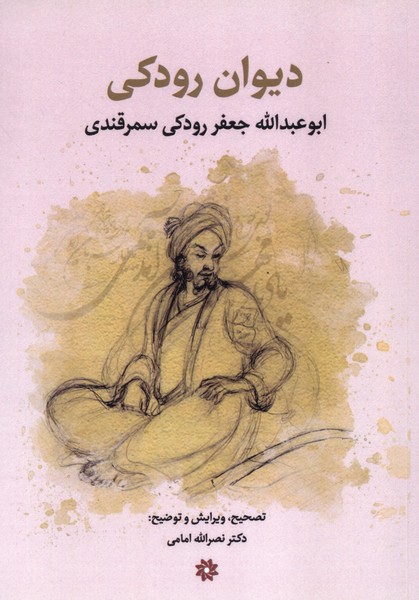 دیوان رودکی
ابوعبدالله جعفر رودکی سمرقندی
تصحیح، ویرایش و توضیح:
دکتر نصرالله امامی